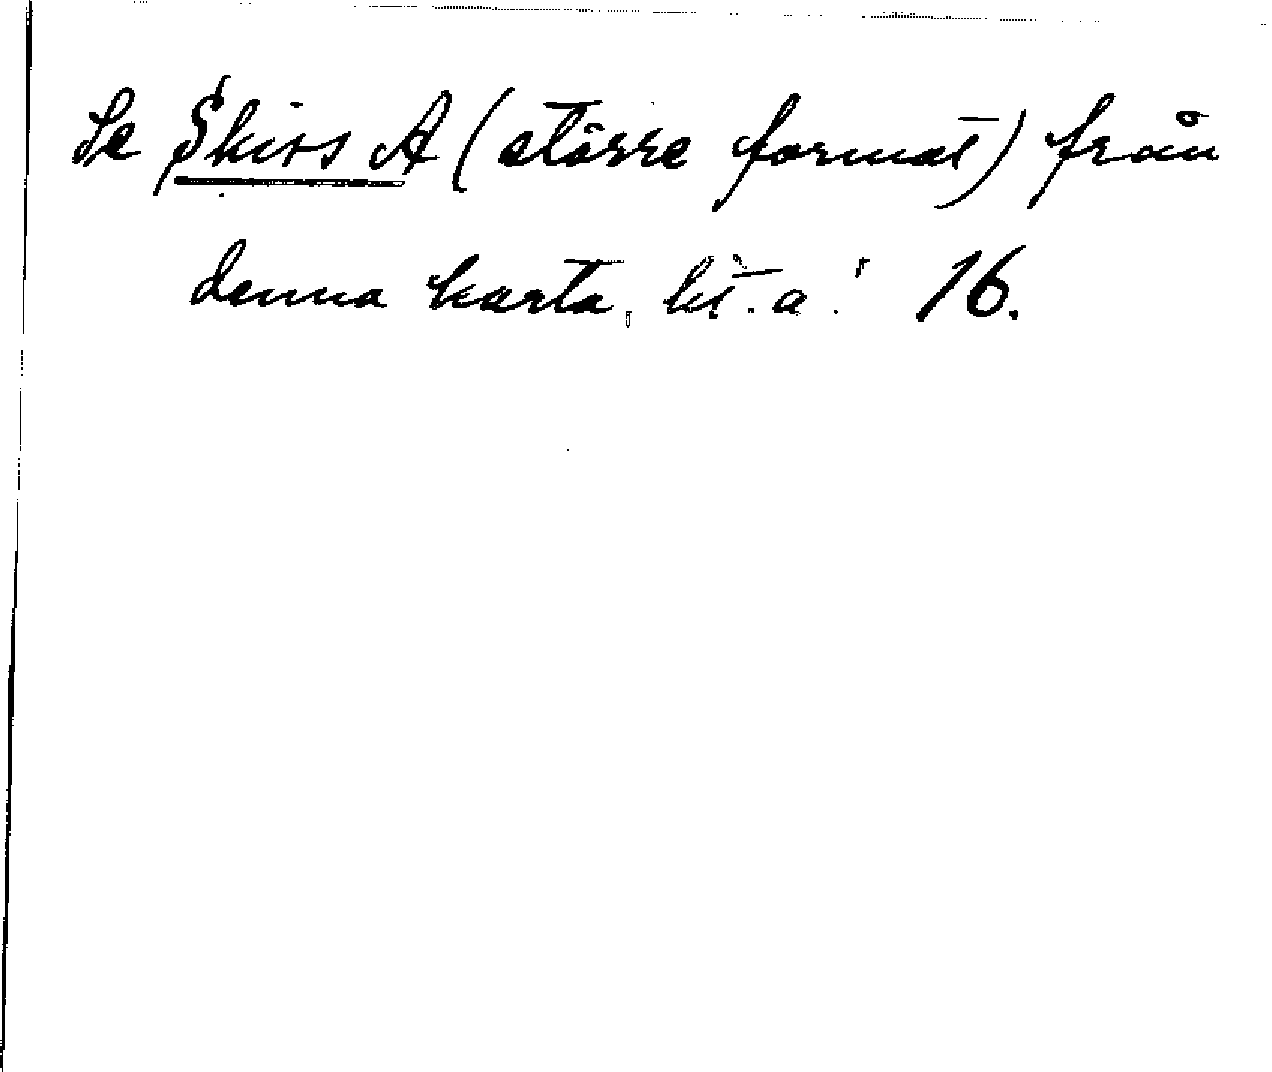 Se Skiss A (större format) från
denna karta, bl. a. 16.